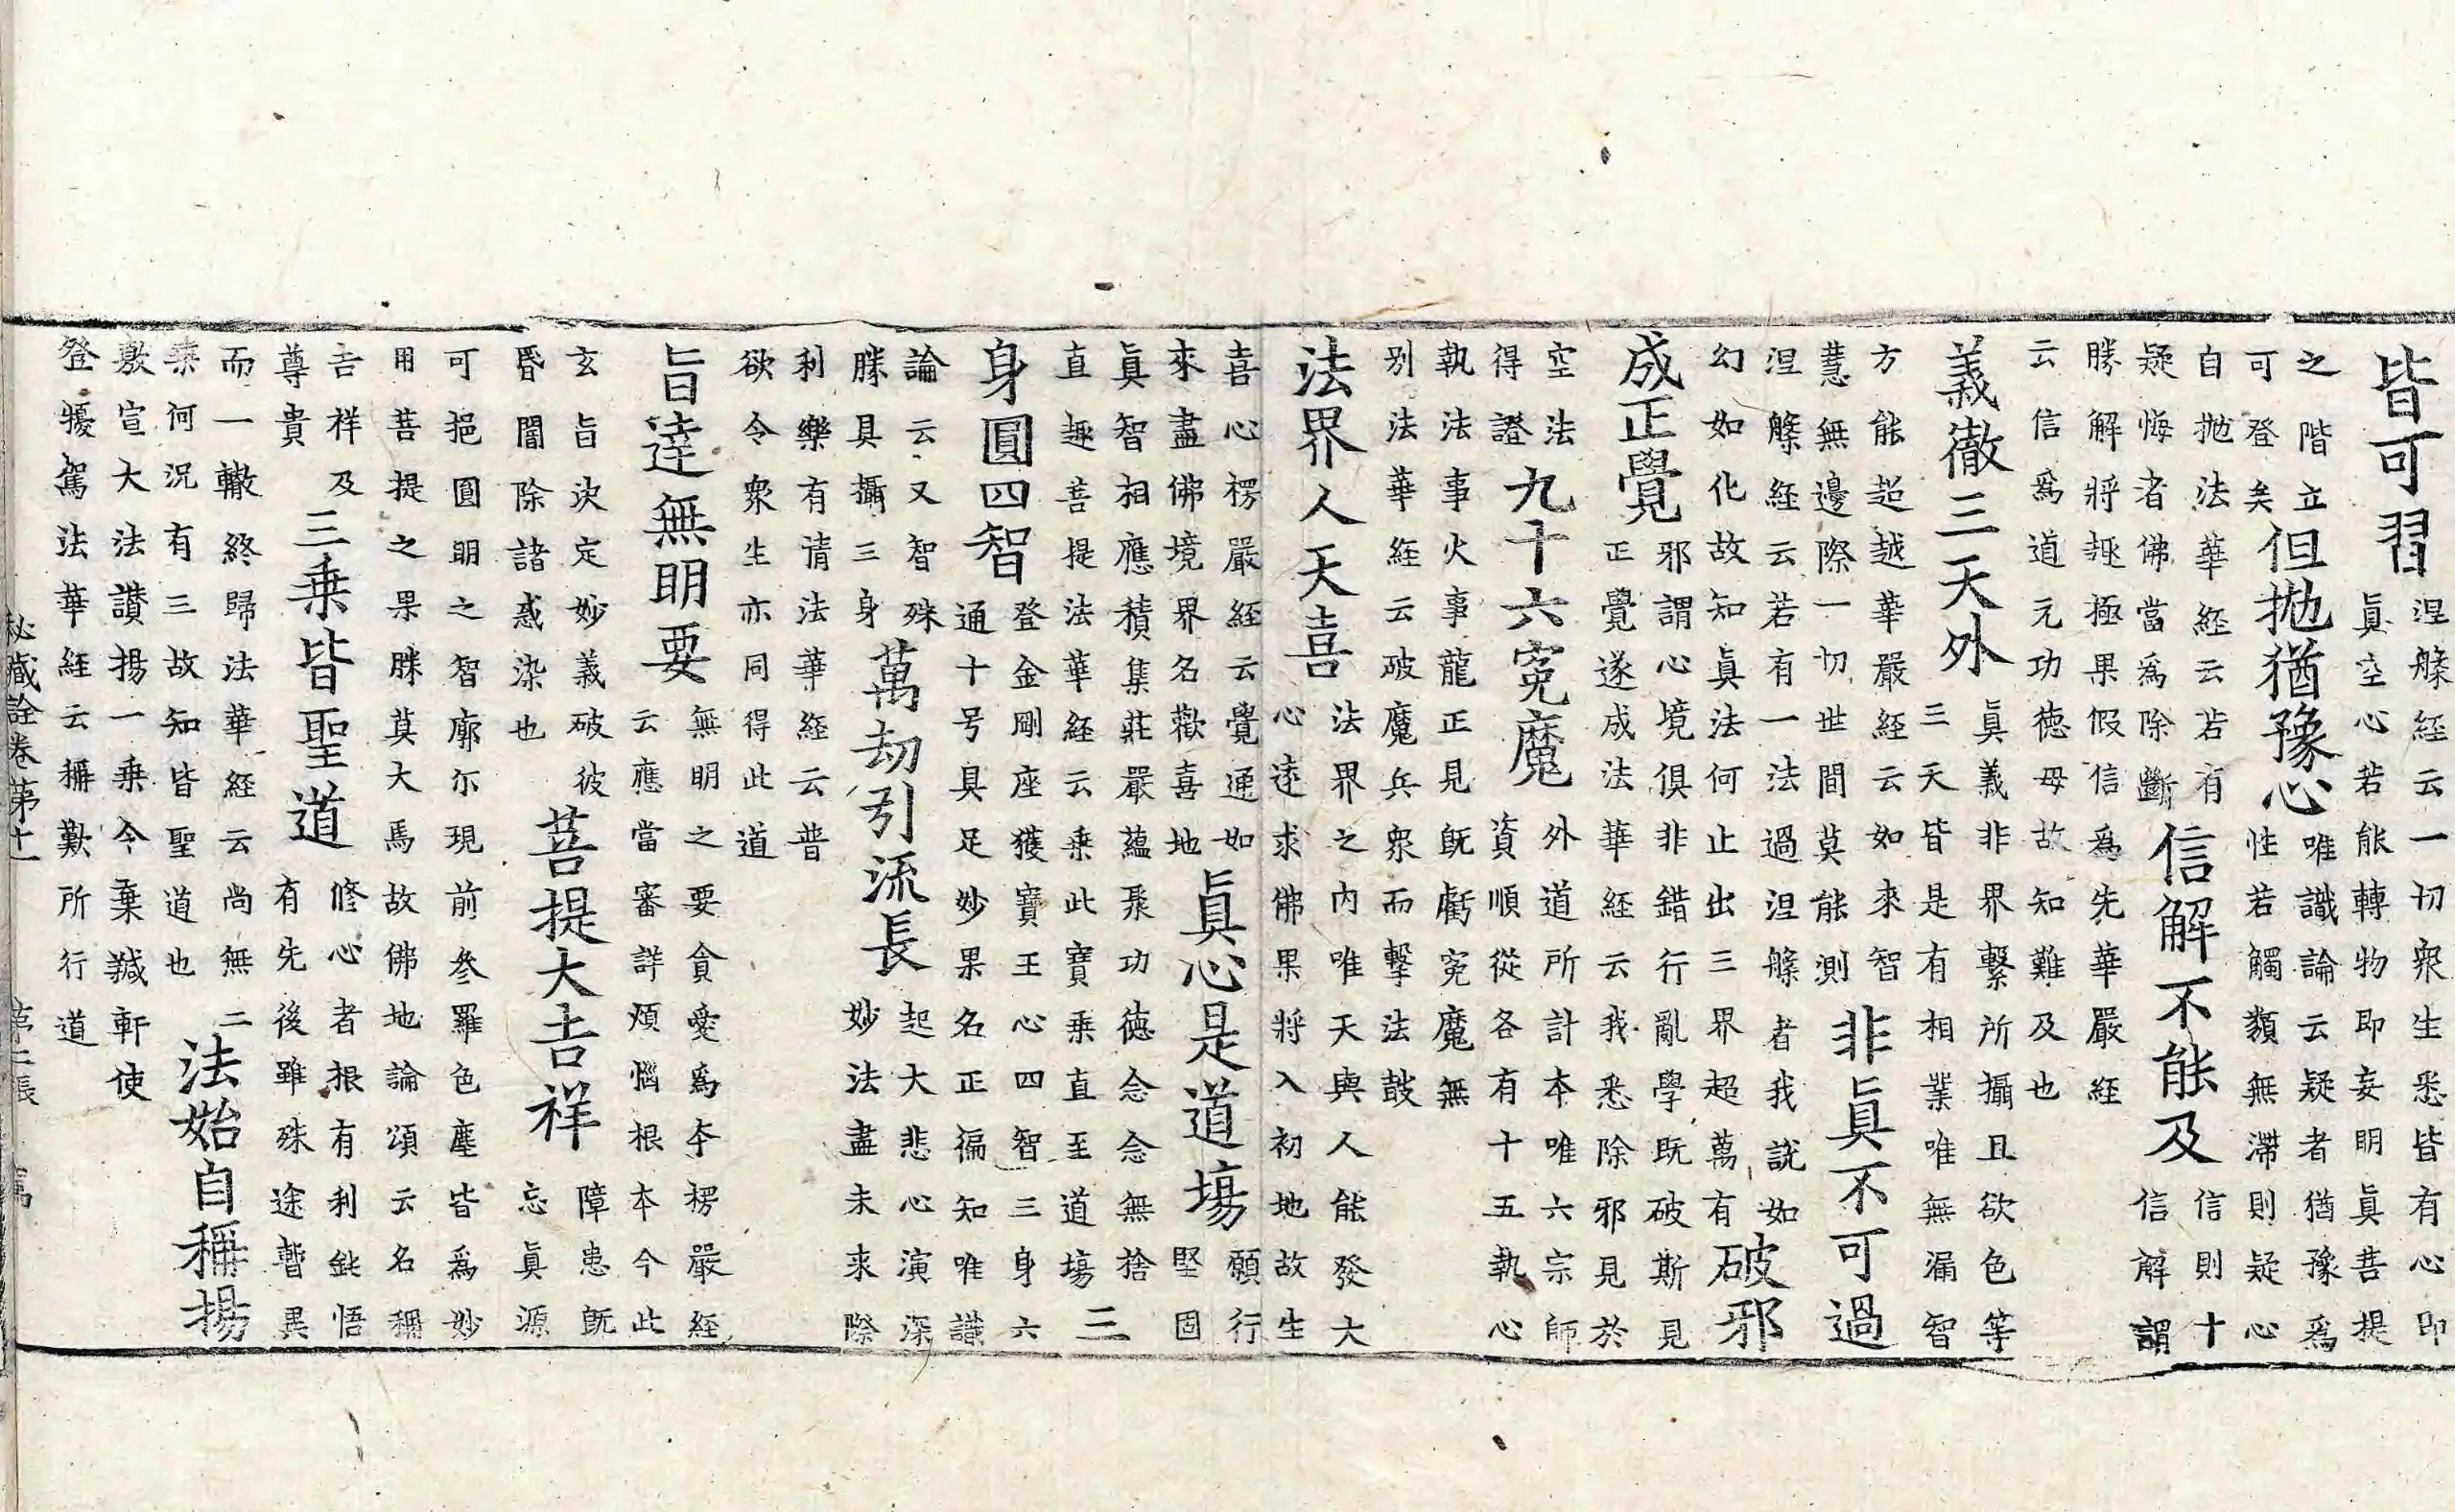 皆可習
涅槃經云一切衆生悉皆有心即
眞空心若能轉物即妄明眞菩提
之階立
可登矣
但抛猶豫心
唯識論云疑者猶豫爲
性若觸類無滯則疑心
自抛法華經云若有
疑悔者佛當爲除斷
信解不能及
信則十
信解謂
勝解將趣極果假信爲先華嚴經
云信爲道元功德母故知難及也
義徹三天外
眞義非界繫所攝且欲色等
三天皆是有相業唯無漏智
方能超越華嚴經云如來智
慧無邊際一切世間莫能測
非眞不可過
涅槃經云若有一法過涅槃者我説如
幻如化故知眞法何止出三界超萬有
破邪
成正覺
邪謂心境俱非錯行亂學既破斯見
正覺遂成法華經云我悉除邪見於
空法
得證
九十六寃魔
外道所計本唯六宗師
資順從各有十五執心
執法事火事龍正見既虧寃魔無
别法華經云破魔兵衆而擊法鼓
法界人天喜
法界之内唯天與人能發大
心逺求佛果將入初地故生
喜心楞嚴經云覺通如
來盡佛境界名歡喜地
眞心是道塲
願行
堅固
眞智相應積集莊嚴蘊聚功德念念無捨
直趣菩提法華經云乘此寶乘直至道塲
三
身圓四智
登金剛座獲寶王心四智三身六
通十号具足妙果名正徧知唯識
論云又智殊
勝具攝三身
萬劫引流長
起大悲心演深
妙法盡未來際
利樂有情法華經云普
欲令衆生亦同得此道
旨達無明要
無明之要貪愛爲本楞嚴經
云應當審詳煩惱根本今此
玄旨決定妙義破彼
昏闇除諸惑染也
菩提大吉祥
障患既
忘眞源
可挹圓明之智廓尔現前叅羅色塵皆爲妙
用菩提之果勝莫大焉故佛地論頌云名稱
吉祥及
尊貴
三乘皆聖道
修心者根有利鈍悟
有先後雖殊途暫異
而一轍終歸法華經云尚無二
乘何況有三故知皆聖道也
法始自稱揚
敷宣大法讃揚一乘今棄軒使
登駕法華經云稱歎所行道
秘藏詮卷第十一 第二張